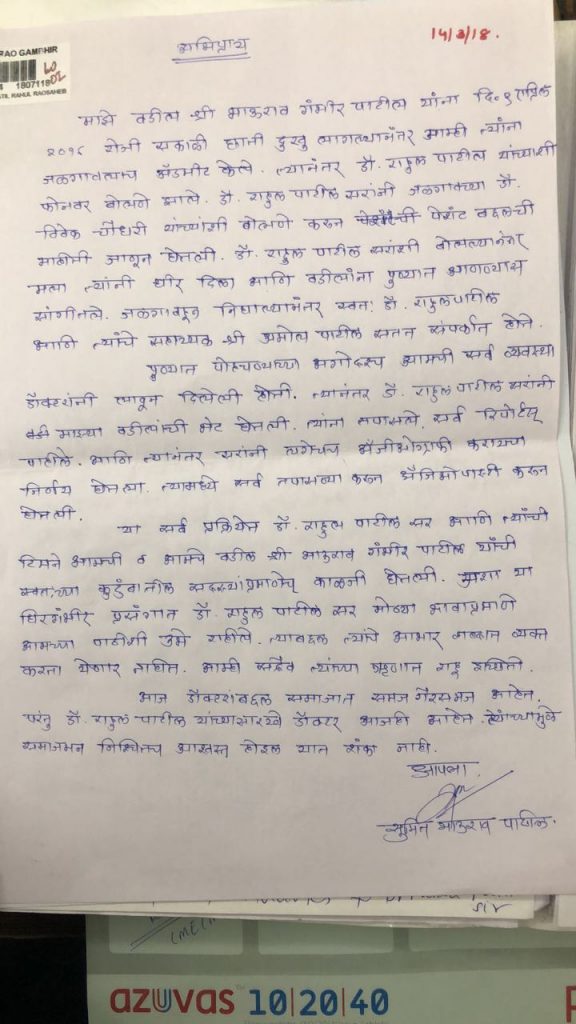 RAO GAMBHIR
18071180
TIL RAHUL RAOSAHEB
अभिप्राय
माझे वडील श्री भाऊराव गंभीर पाटील यांना दि. ९ एप्रिल
२०१८ रोजी सकाळी छाती दुखु लागल्यानंतर आम्ही त्यांना
जळगावलाच अ‍ॅडमीट केले. त्यानंतर डॉ. राहुल पाटील यांच्याशी
फोनवर बोलणे झाले. डॉ. राहुल पाटील सरांनी जळगावच्या डॉ.
विवेक चौधरी यांच्याशी बोलणे करुन पेशंट बद्दलची
माहीती जाणून घेतली. डॉ. राहुल पाटील सरांशी बोलल्यानंतर
मला त्यांनी धीर दिला आणि वडीलांना पुण्यात आणण्यास
सांगीतले. जळगावहून निघाल्यानंतर स्वतः डॉ. राहुल पाटील
आणि त्यांचे सहाय्यक श्री अमोल पाटील सतत संपर्कात होते.
पुण्यात पोहचण्याच्या अगोदरच आमची सर्व व्यवस्था
डॉक्टरांनी लावून दिलेली होती. त्यानंतर डॉ. राहुल पाटील सरांनी
माझ्या वडीलांची भेट घेतली. त्यांना तपासले, सर्व रिपोर्टस्
पाहीले. आणि त्यानंतर सरांनी लगेचच अँजीओग्राफी करायचा
निर्णय घेतला. त्यामध्ये सर्व तपासण्या करुन अँजिओप्लास्टी करून
घेतली.
या सर्व प्रक्रियेत डॉ. राहुल पाटील सर आणि त्यांची
टिमने आमची व आमचे वडील श्री भाऊराव गंभीर पाटील यांची
स्वतःच्या कुटुंबातील सदस्यांप्रमाणेच काळजी घेतली. अशा या
धिरगंभीर प्रसंगात डॉ. राहुल पाटील सर मोठ्या भावाप्रमाणे
आमच्या पाठीशी उभे राहीले. त्याबद्दल त्यांचे आभार शब्दात व्यक्त
करता येणार नाहीत. आम्ही सदैव त्यांच्या ऋणात राहू इच्छितो.
आज डॉक्टरांबद्दल समाजात समज गैरसमज आहेत.
परंतु डॉ. राहुल पाटील यांच्यासारखे डॉक्टर आजही आहेत. त्यांच्यामुळे
समाजमन निश्चितच आश्वस्त होईल यात शंका नाही.
आपला
सुमित भाऊराव पाटील.
azuvas 10|20|40